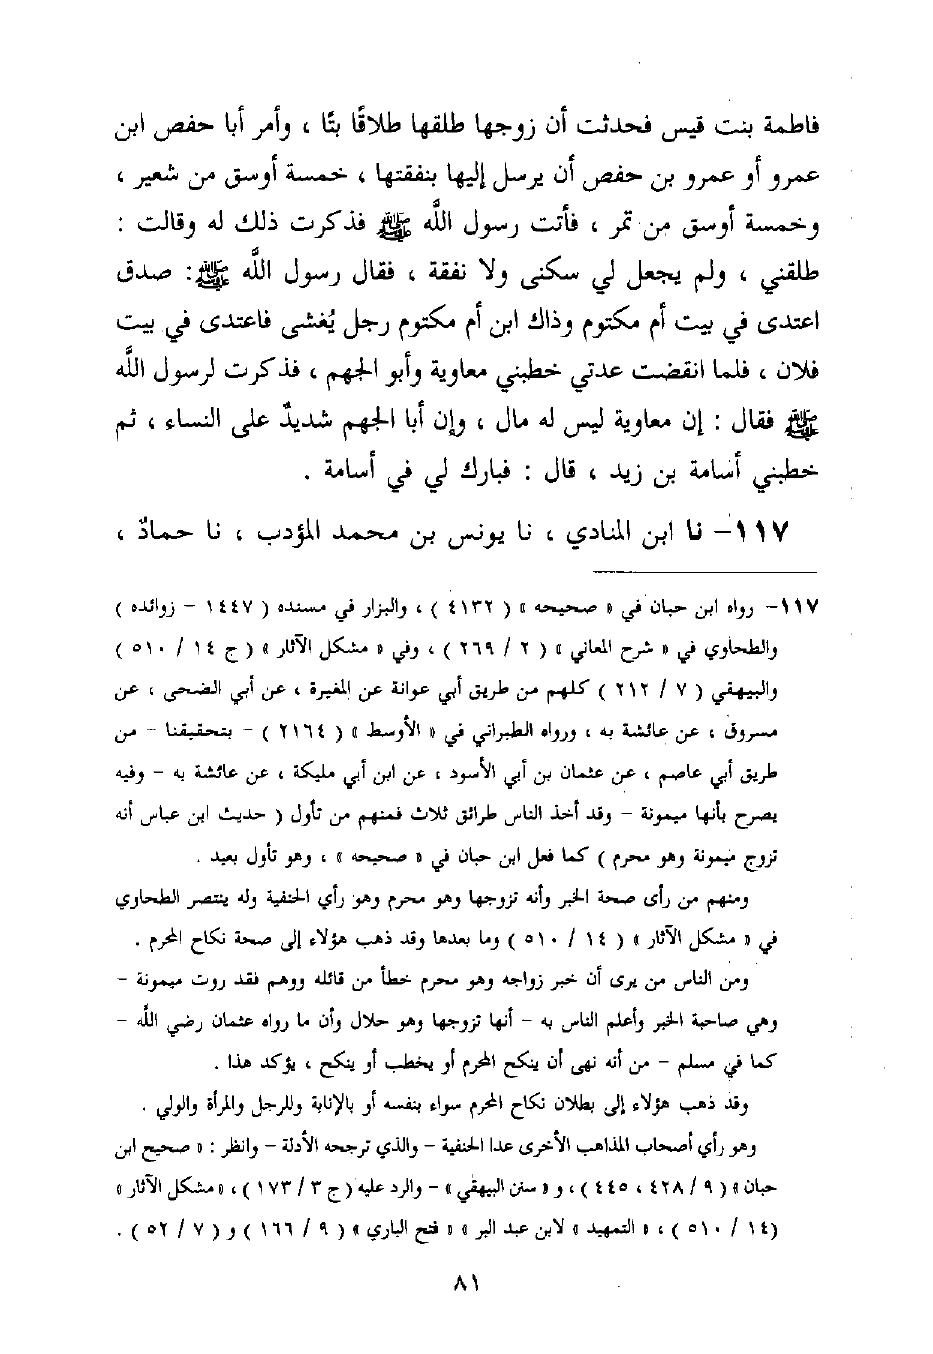 فاطمة بنت قيس فحدثت أن زوجها طلقها طلاقًا بتًا ، وأمر أبا حفص ابن
عمرو أو عمرو بن حفص أن يرسل إليها بنفقتها ، خمسة أوسق من شعير ،
وخمسة أوسق من تمر ، فأتت رسول اللَّه ﷺ فذكرت ذلك له وقالت :
طلقني ، ولم يجعل لي سكنى ولا نفقة ، فقال رسول اللَّه ﷺ: صدق
اعتدى في بيت أم مكتوم وذاك ابن أم مكتوم رجل يُغشى فاعتدى في بيت
فلان ، فلما انقضت عدتي خطبني معاوية وأبو الجهم ، فذكرت لرسول اللَّه
ﷺ فقال : إن معاوية ليس له مال ، وإن أبا الجهم شديدٌ على النساء ، ثم
خطبني أسامة بن زيد ، قال : فبارك لي في أسامة .
١١٧- نا ابن المنادي ، نا يونس بن محمد المؤدب ، نا حمادٌ ،
١١٧- رواه ابن حبان في « صحيحه » ( ٤١٣٢ ) ، والبزار في مسنده ( ١٤٤٧ - زوائده )
والطحاوي في « شرح المعاني » ( ٢ / ٢٦٩ ) ، وفي « مشكل الآثار » ( ج ١٤ / ٥١٠ )
والبيهقي ( ٧ / ٢١٢ ) كلهم من طريق أبي عوانة عن المغيرة ، عن أبي الضحى ، عن
مسروق ، عن عائشة به ، ورواه الطبراني في « الأوسط » ( ٢١٦٤ ) - بتحقيقنا - من
طريق أبي عاصم ، عن عثمان بن أبي الأسود ، عن ابن أبي مليكة ، عن عائشة به - وفيه
يصرح بأنها ميمونة - وقد أخذ الناس طرائق ثلاث فمنهم من تأول ( حديث ابن عباس أنه
تزوج ميمونة وهو محرم ) كما فعل ابن حبان في « صحيحه » ، وهو تأول بعيد .
ومنهم من رأى صحة الخبر وأنه تزوجها وهو محرم وهو رأي الحنفية وله ينتصر الطحاوي
في « مشكل الآثار » ( ١٤ / ٥١٠ ) وما بعدها وقد ذهب هؤلاء إلى صحة نكاح المحرم .
ومن الناس من يرى أن خبر زواجه وهو محرم خطأ من قائله ووهم فقد روت ميمونة -
وهي صاحبة الخبر وأعلم الناس به - أنها تزوجها وهو حلال وأن ما رواه عثمان رضي اللَّه -
كما في مسلم - من أنه نهى أن ينكح المحرم أو يخطب أو ينكح ، يؤكد هذا .
وقد ذهب هؤلاء إلى بطلان نكاح المحرم سواء بنفسه أو بالإنابة وللرجل والمرأة والولي .
وهو رأي أصحاب المذاهب الأخرى عدا الحنفية - والذي ترجحه الأدلة - وانظر : « صحيح ابن
حبان » ( ٩ / ٤٢٨ ، ٤٤٥ ) ، و « سنن البيهقي » - والرد عليه ( ج ٣ / ١٧٣ ) ، « مشكل الآثار »
(١٤ / ٥١٠ ) ، « التمهيد » لابن عبد البر » « فتح الباري » ( ٩ / ١٦٦ ) و ( ٧ / ٥٢ ) .
٨١